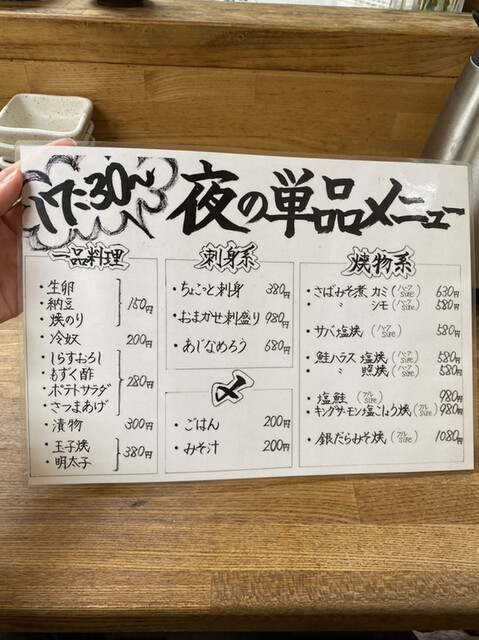 17:30〜
夜の単品メニュー
一品料理
・生卵
・納豆
・焼のり
150円
・冷奴 200円
・しらすおろし
・もずく酢
・ポテトサラダ
・さつまあげ
280円
・漬物 300円
・玉子焼
・明太子
380円
刺身系
・ちょこっと刺身 380円
・おまかせ刺盛り 980円
・あじなめろう 680円
〆
・ごはん 200円
・みそ汁 200円
焼物系
・さばみそ煮 カミ (ハーフSize) 630円
・ 〃 シモ (ハーフSize) 580円
・サバ塩焼 (ハーフSize) 580円
・鮭ハラス 塩焼 (ハーフSize) 580円
・ 〃 照焼 (ハーフSize) 580円
・塩鮭 (フルSize) 980円
・キングサーモン塩こしょう焼 (フルSize) 980円
・銀だらみそ焼 (フルSize) 1080円